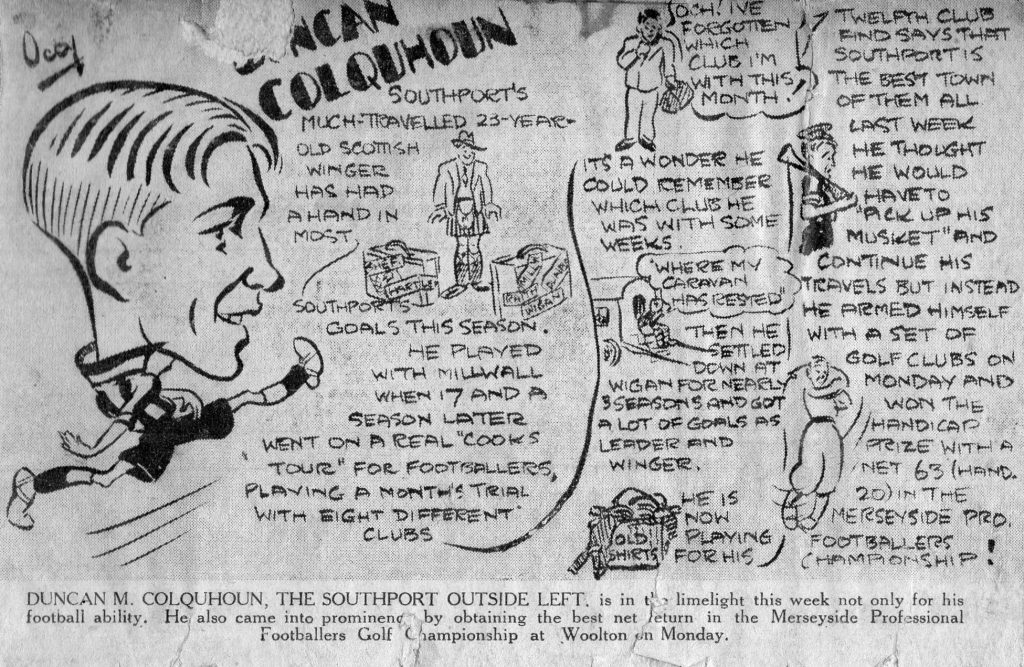 DUNCAN
COLQUHOUN
SOUTHPORT'S
MUCH-TRAVELLED 23-YEAR-
OLD SCOTTISH
WINGER
HAS HAD
A HAND IN
MOST
SOUTHPORT'S
GOALS THIS SEASON.
HE PLAYED
WITH MILLWALL
WHEN 17 AND A
SEASON LATER
WENT ON A REAL "COOKS
TOUR" FOR FOOTBALLERS,
PLAYING A MONTH'S TRIAL
WITH EIGHT DIFFERENT
CLUBS
WIGAN
OCH! I'VE
FORGOTTEN
WHICH
CLUB I'M
WITH THIS
MONTH!
IT'S A WONDER HE
COULD REMEMBER
WHICH CLUB HE
WAS WITH SOME
WEEKS.
"WHERE MY
CARAVAN
HAS RESTED"
THEN HE
SETTLED
DOWN AT
WIGAN FOR NEARLY
3 SEASONS AND GOT
A LOT OF GOALS AS
LEADER AND
WINGER.
OLD
SHIRTS
HE IS
NOW
PLAYING
FOR HIS
TWELFTH CLUB
AND SAYS THAT
SOUTHPORT IS
THE BEST TOWN
OF THEM ALL
LAST WEEK
HE THOUGHT
HE WOULD
HAVE TO
"PACK UP HIS
MUSKET" AND
CONTINUE HIS
TRAVELS BUT INSTEAD
HE ARMED HIMSELF
WITH A SET OF
GOLF CLUBS ON
MONDAY AND
WON THE
HANDICAP
PRIZE WITH A
NET 63 (HAND.
20) IN THE
MERSEYSIDE PRO.
FOOTBALLERS
CHAMPIONSHIP!
DUNCAN M. COLQUHOUN, THE SOUTHPORT OUTSIDE LEFT, is in the limelight this week not only for his
football ability. He also came into prominence by obtaining the best net return in the Merseyside Professional
Footballers Golf Championship at Woolton on Monday.